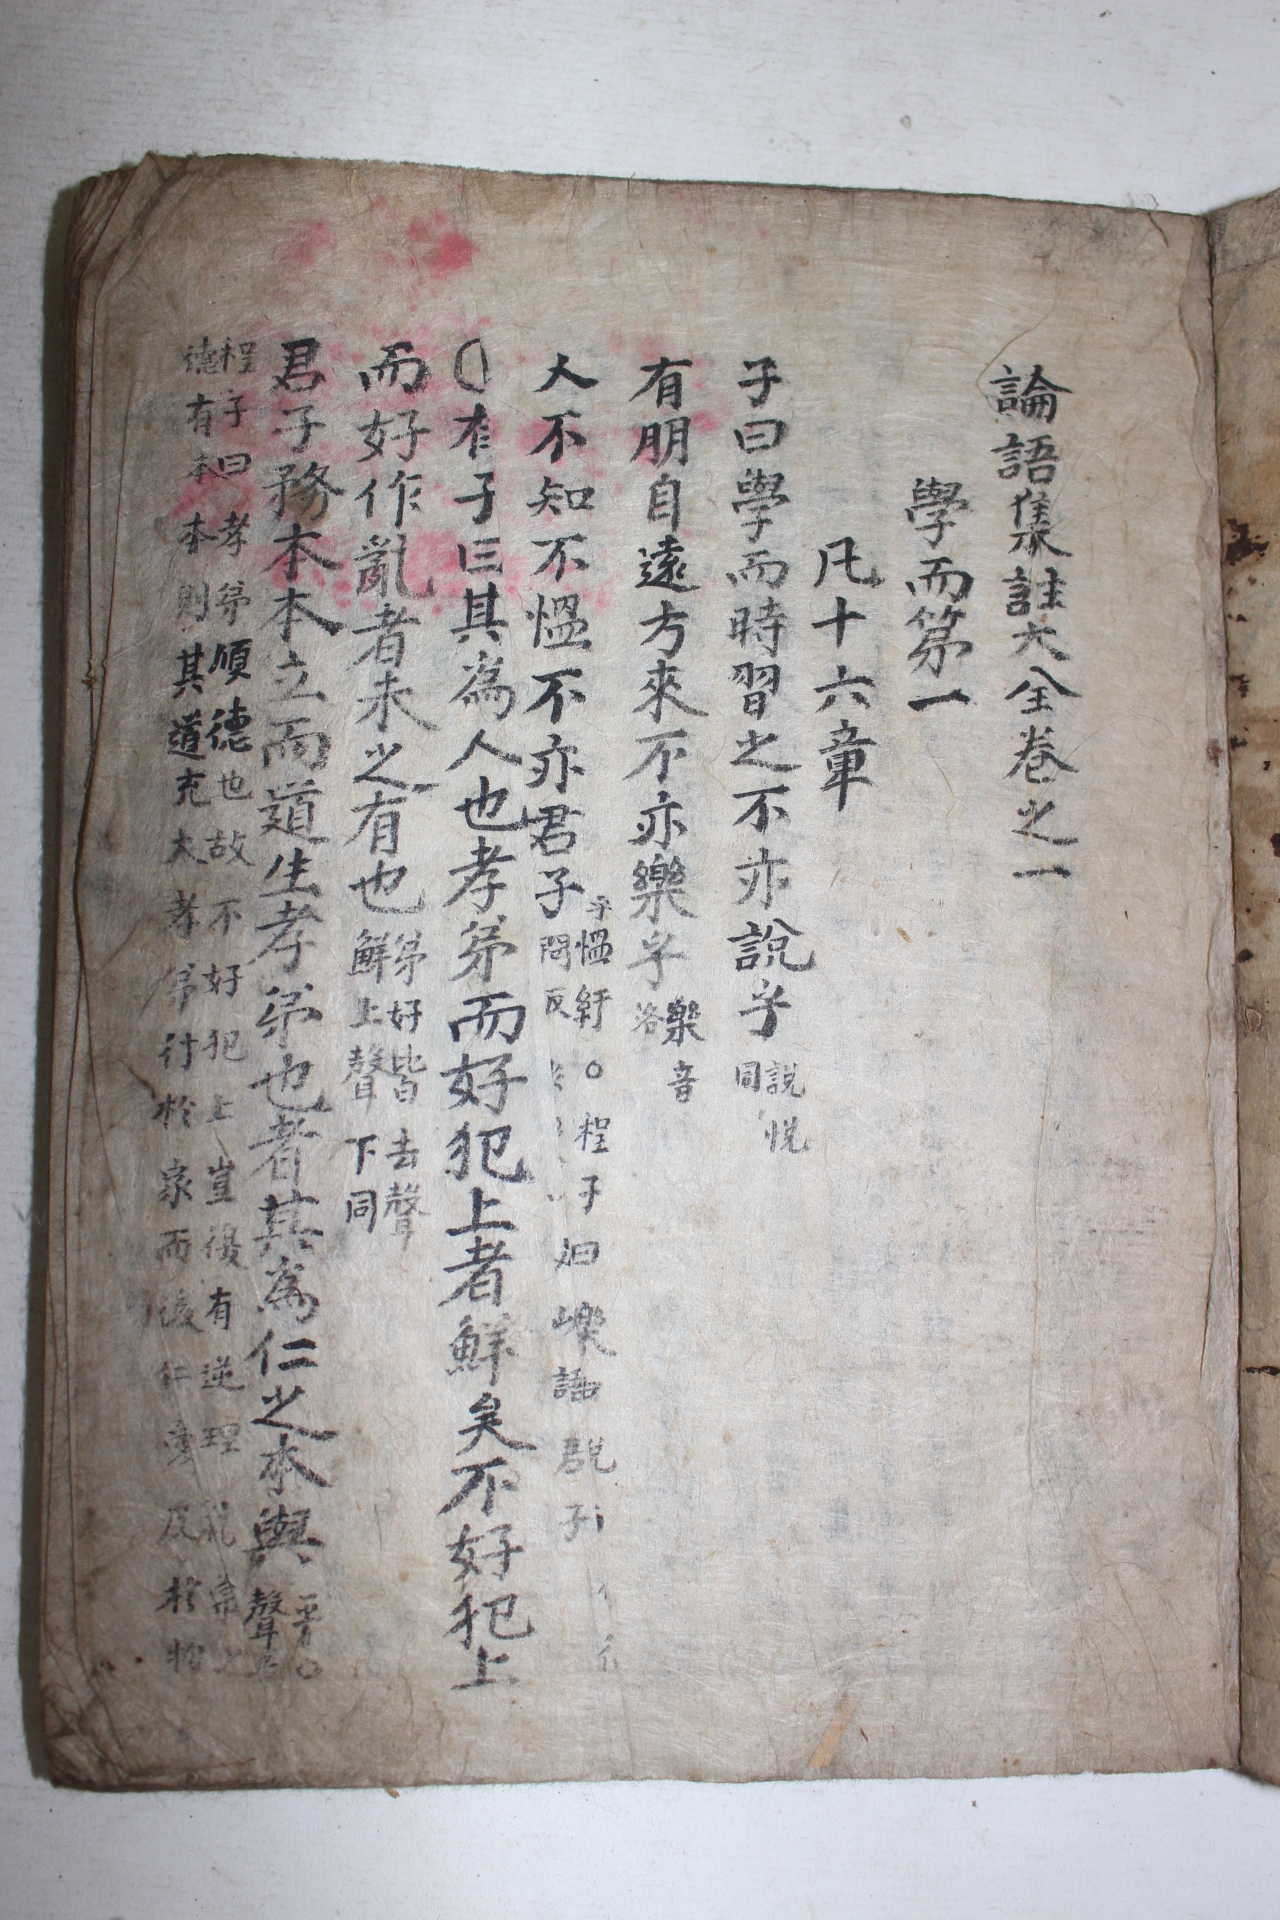 論語集註大全卷之一
學而第一
凡十六章
子曰學而時習之不亦説乎
説悦
同
有朋自遠方來不亦樂乎
樂音
洛
人不知不慍不亦君子乎
慍紆
問反
○程子曰樂
説
語
君子
○有子曰其爲人也孝弟而好犯上者鮮矣不好犯上
而好作亂者未之有也
弟好皆去聲
鮮上聲下同
君子務本本立而道生孝弟也者其爲仁之本與
平○
聲
程子曰孝弟順德也故不好犯上豈復有逆理亂常之
德有本本則其道充大孝弟行於家而後仁愛及於物